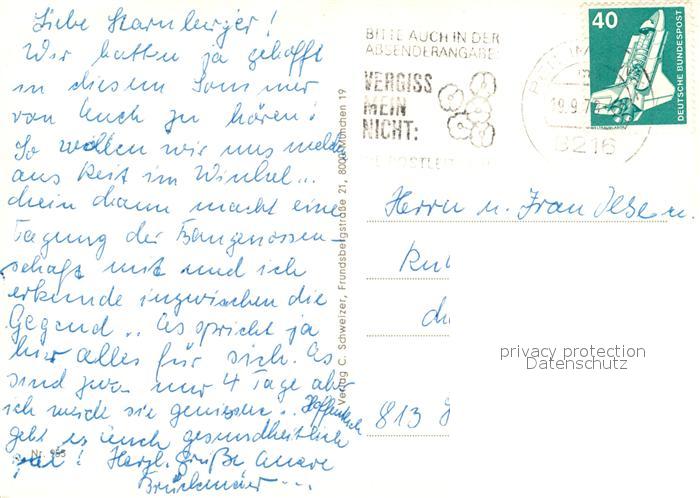 Liebe Starnberger!
Wir hatten ja gehofft
in diesem Sommer
von Euch zu hören!
So wollen wir uns melden
aus Reit im Winkel...
Mein Mann macht eine
Tagung der Baugenossen-
schaft mit und ich
erkunde inzwischen die
Gegend.. Es spricht ja
hier alles für sich. Es
sind zwar nur 4 Tage aber
ich werde sie geniessen.. Hoffentlich
geht es Euch gesundheitlich
gut! Herzl. Grüße Euere
Brückmaier...
Nr. 985
Verlag C. Schweizer, Frundsbergstraße 21, 8000 München 19
BITTE AUCH IN DER
ABSENDERANGABE:
VERGISS
MEIN
NICHT:
DIE POSTLEIT
19.9.7
8216
40
DEUTSCHE BUNDESPOST
Herrn u. Frau Ilse u.
813
privacy protection
Datenschutz